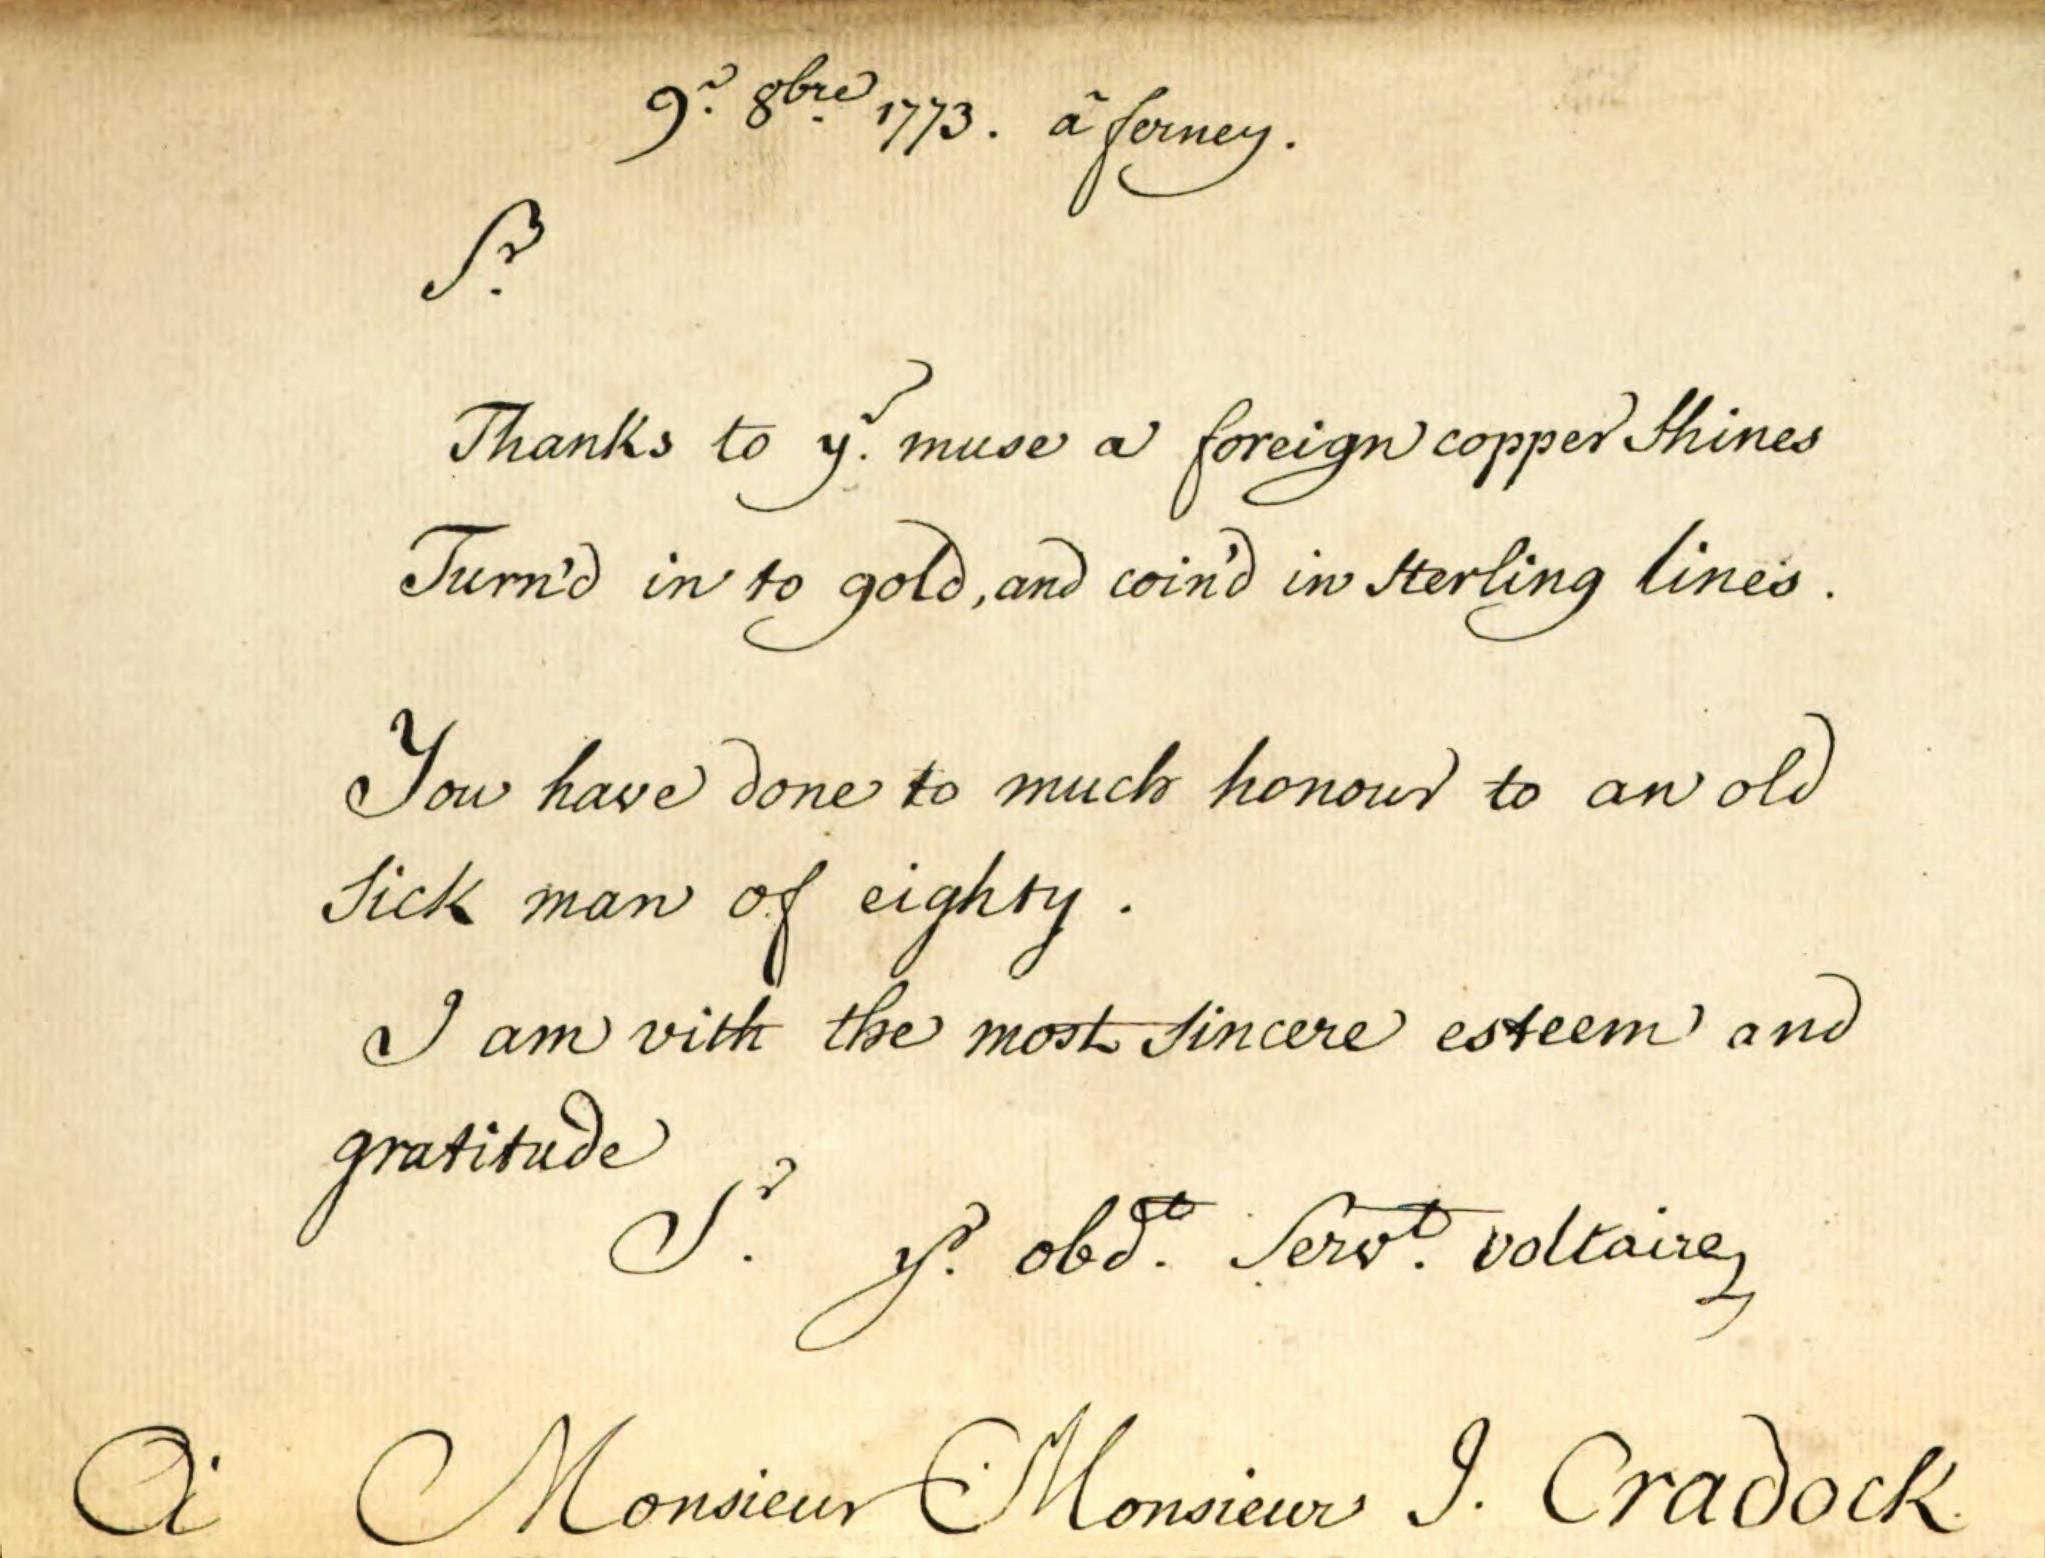 9r. 8bre. 1773. à ferney.
Sr.
Thanks to yr. muse a foreign copper shines
Turn'd in to gold, and coin'd in sterling lines.
You have done to much honour to an old
sick man of eighty.
I am vith the most sincere esteem and
gratitude
Sr. yr. obdt. Servt. voltaire
A Monsieur Monsieur J. Cradock.